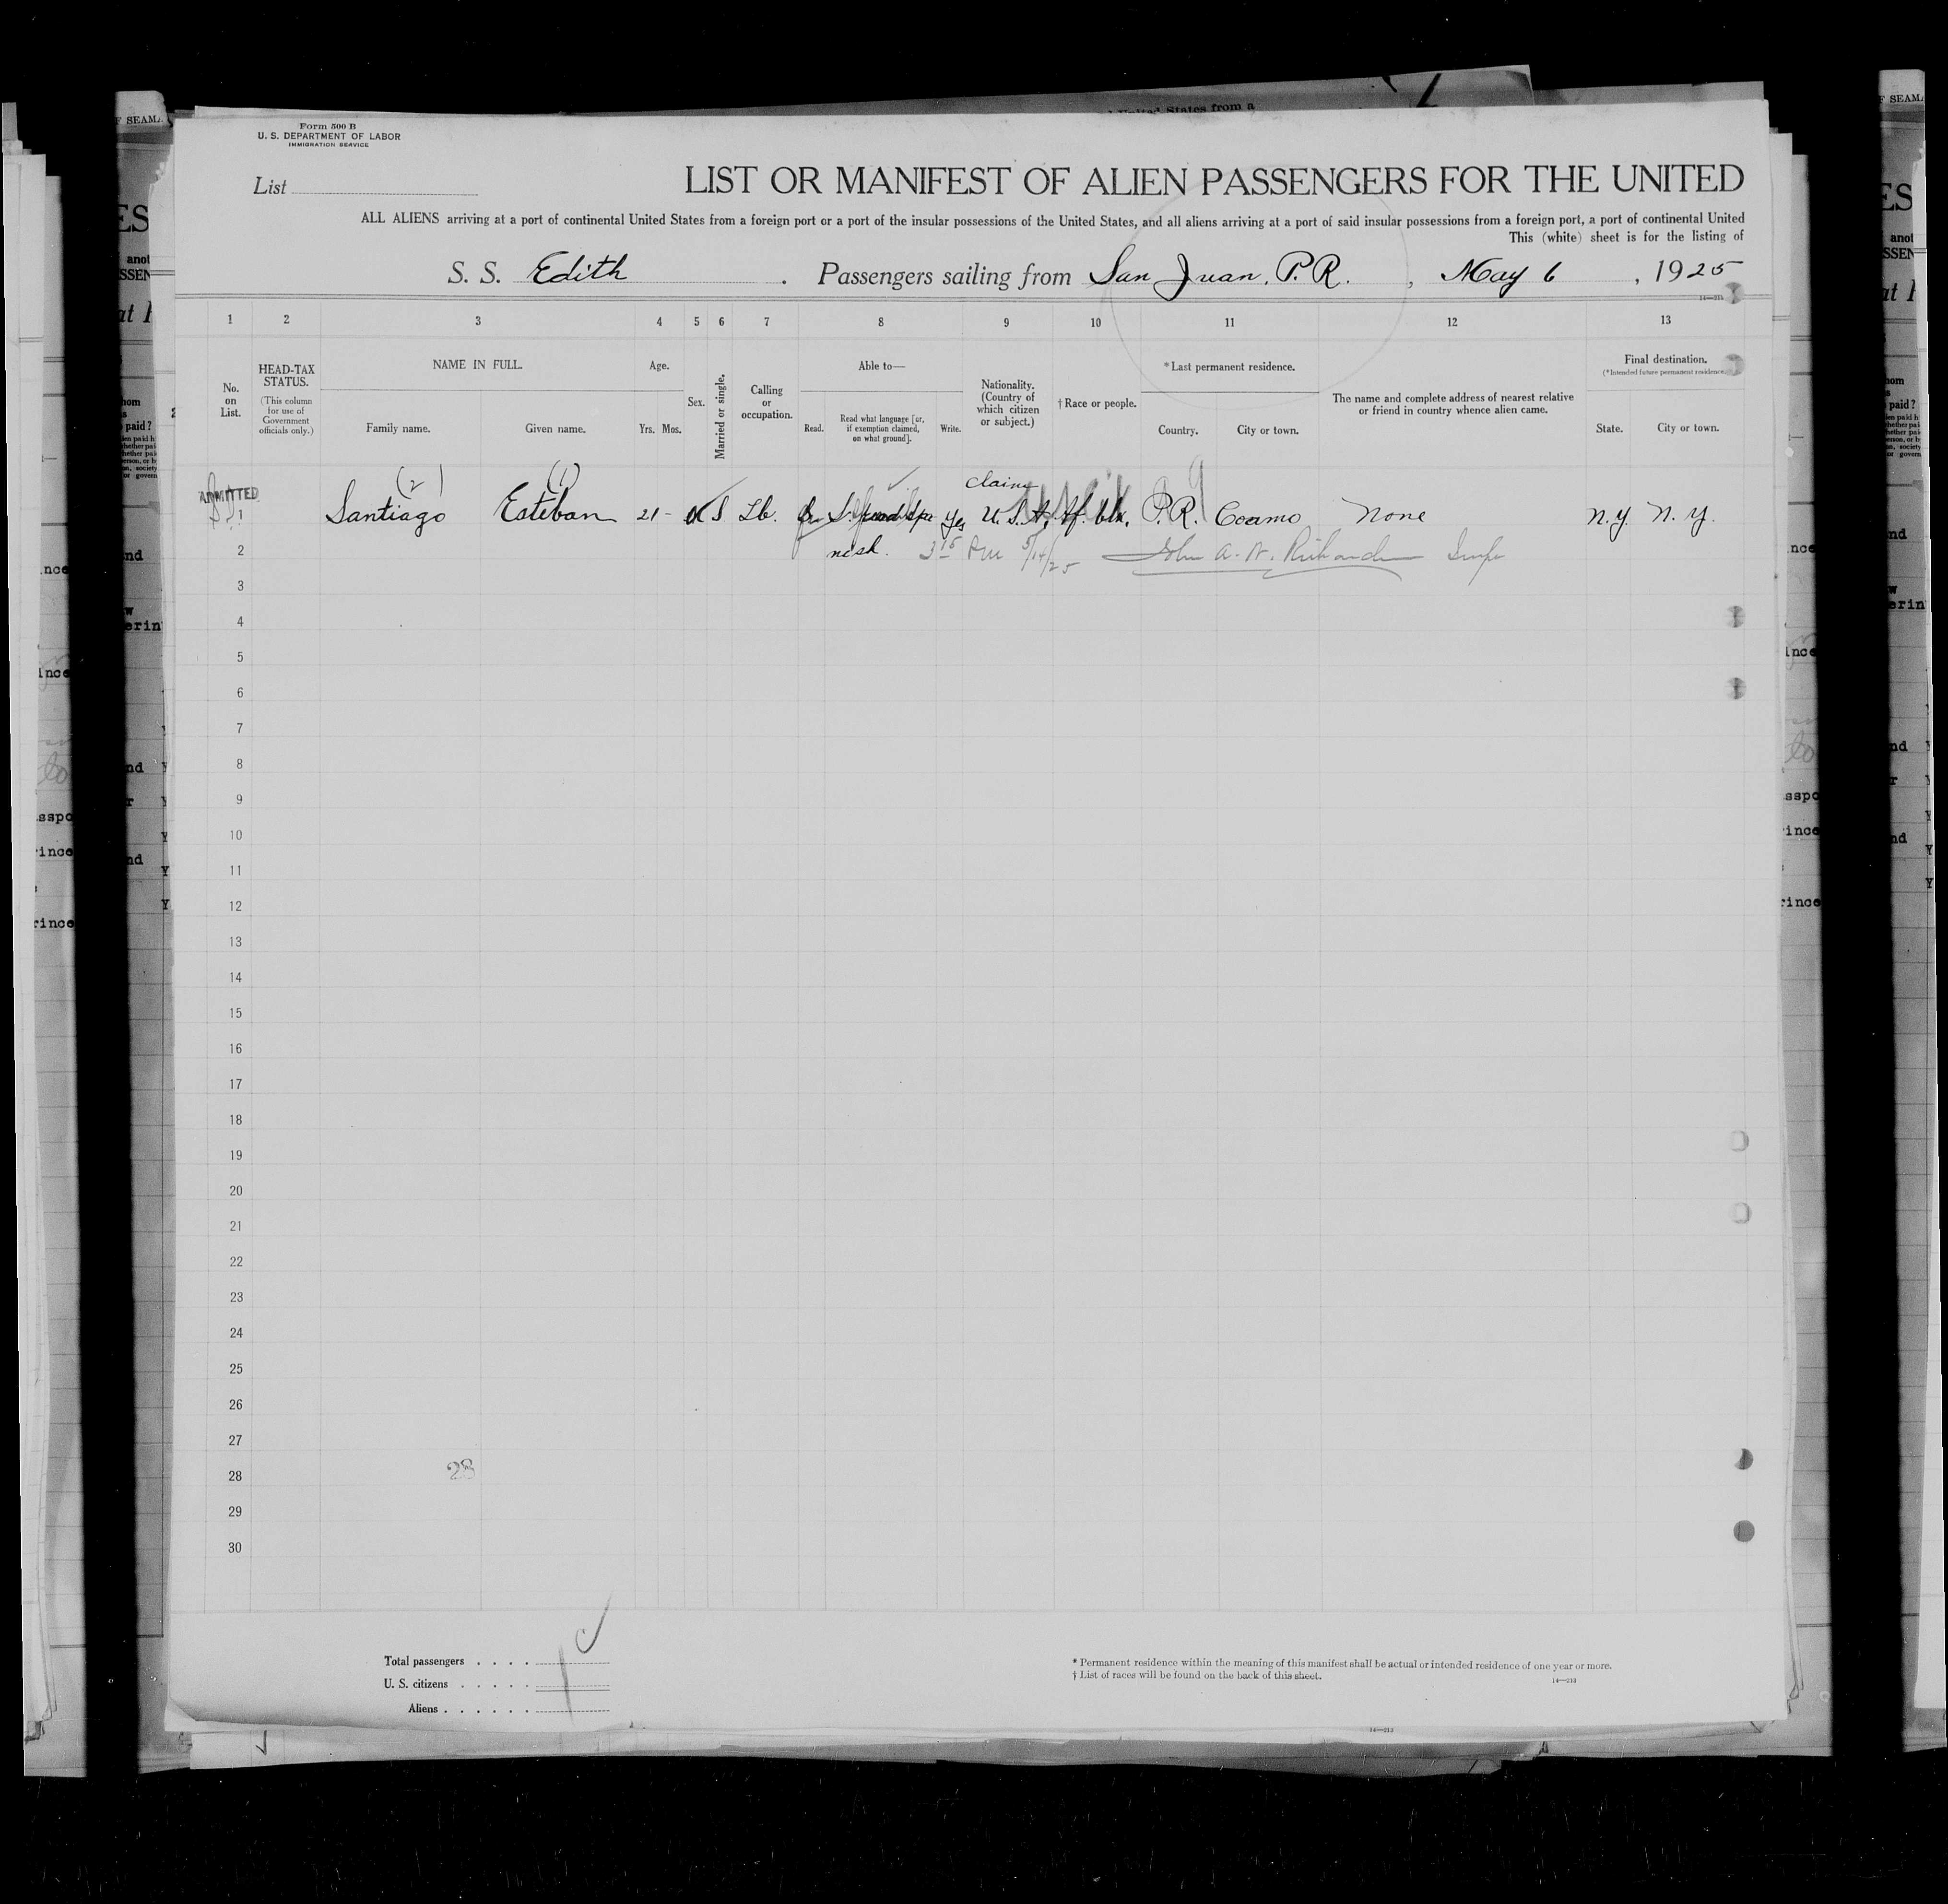 Form 500 B
U. S. DEPARTMENT OF LABOR
IMMIGRATION SERVICE
List
LIST OR MANIFEST OF ALIEN PASSENGERS FOR THE UNITED
ALL ALIENS arriving at a port of continental United States from a foreign port or a port of the insular possessions of the United States, and all aliens arriving at a port of said insular possessions from a foreign port, a port of continental United
This (white) sheet is for the listing of
S. S. Edith . Passengers sailing from San Juan, P.R. , May 6 , 1925
1 2 3 4 5 6 7 8 9 10 11 12 13
No. on List.
HEAD-TAX STATUS.
(This column for use of Government officials only.)
NAME IN FULL.
Family name. Given name.
Age.
Yrs. Mos.
Sex.
Married or single.
Calling or occupation.
Able to—
Read. Read what language [or, if exemption claimed, on what ground]. Write.
Nationality. (Country of which citizen or subject.)
† Race or people.
* Last permanent residence.
Country. City or town.
The name and complete address of nearest relative or friend in country whence alien came.
Final destination.
(* Intended future permanent residence.)
State. City or town.
(2) (1) claims
ADMITTED
1 Santiago Esteban 21 - S Lb. Yes U.S.A. Af. blk. P.R. Coamo None N.Y. N.Y.
2 nish. 3 15 PM 5/14/25 John A. W. Richards Insp
3
4
5
6
7
8
9
10
11
12
13
14
15
16
17
18
19
20
21
22
23
24
25
26
27
28 28
29
30
Total passengers . . . .
U. S. citizens . . . . .
Aliens . . . . . .
* Permanent residence within the meaning of this manifest shall be actual or intended residence of one year or more.
† List of races will be found on the back of this sheet.
14—213
14—213